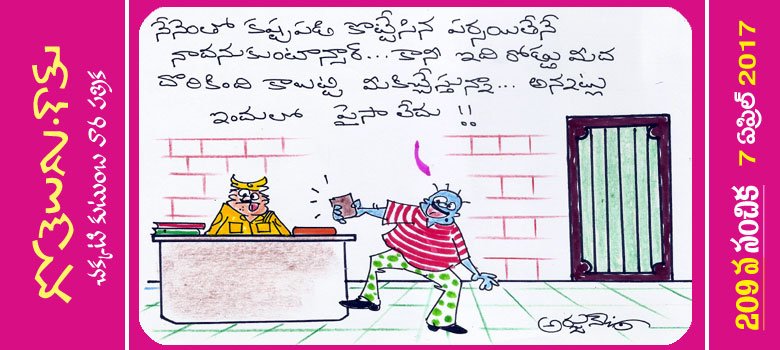 గోతెలుగు.కామ్
చక్కనైన కుటుంబ వార పత్రిక
నేనెంతో కష్టపడి కొట్టేసిన పర్సయితేనే
నాదనుకుంటాన్సార్... కానీ ఇది రోడ్డు మీద
దొరికింది కాబట్టి మీకిచ్చేస్తున్నా... అన్నట్లు
ఇందులో పైసా లేదు !!
209 వ సంచిక 7 ఏప్రిల్ 2017